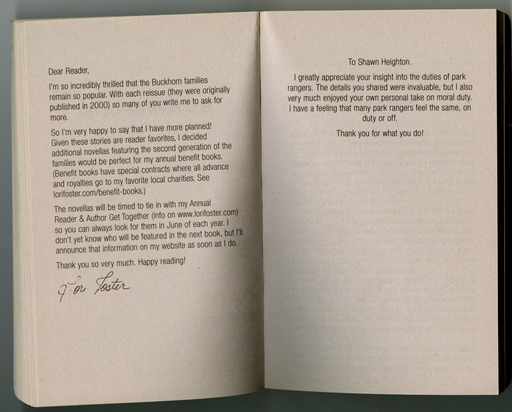 Dear Reader,
I'm so incredibly thrilled that the Buckhorn families
remain so popular. With each reissue (they were originally
published in 2000) so many of you write me to ask for
more.
So I'm very happy to say that I have more planned!
Given these stories are reader favorites, I decided
additional novellas featuring the second generation of the
families would be perfect for my annual benefit books.
(Benefit books have special contracts where all advance
and royalties go to my favorite local charities. See
lorifoster.com/benefit-books.)
The novellas will be timed to tie in with my Annual
Reader & Author Get Together (info on www.lorifoster.com)
so you can always look for them in June of each year. I
don't yet know who will be featured in the next book, but I'll
announce that information on my website as soon as I do.
Thank you so very much. Happy reading!
Lori Foster
To Shawn Heighton.
I greatly appreciate your insight into the duties of park
rangers. The details you shared were invaluable, but I also
very much enjoyed your own personal take on moral duty.
I have a feeling that many park rangers feel the same, on
duty or off.
Thank you for what you do!